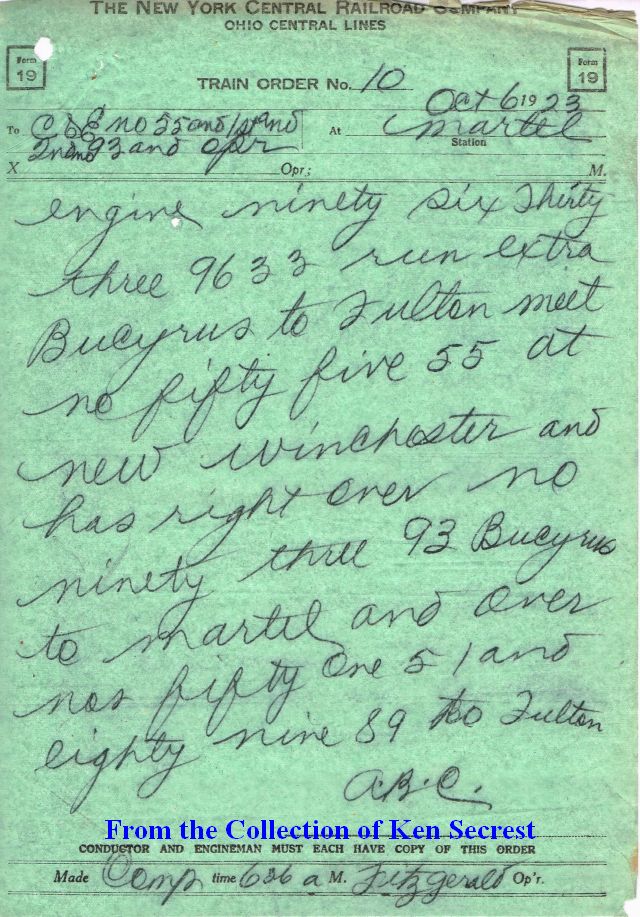 THE NEW YORK CENTRAL RAILROAD COMPANY
OHIO CENTRAL LINES
Form 19
Form 19
TRAIN ORDER No. 10
Oct 6 1923
To C&E no 55 and 1st and At Martel
2nd 93 and opr Station
X Opr; M.
engine ninety six Thirty
three 9633 run extra
Bucyrus to Fulton meet
no fifty five 55 at
new winchester and
has right over no
ninety three 93 Bucyrus
to martel and over
nos fifty one 51 and
eighty nine 89 to Fulton
A.B.C.
From the Collection of Ken Secrest
CONDUCTOR AND ENGINEMAN MUST EACH HAVE COPY OF THIS ORDER
Made Comp time 636 a M. Fitzgerald Op'r.